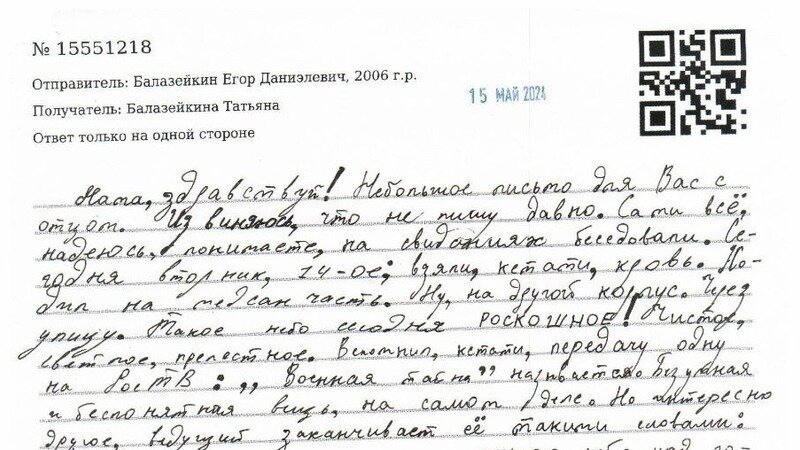 № 15551218
Отправитель: Балазейкин Егор Даниэлевич, 2006 г.р.
15 МАЙ 2024
Получатель: Балазейкина Татьяна
Ответ только на одной стороне
Мама, здравствуй! Небольшое письмо для Вас с
отцом. Извиняюсь, что не пишу давно. Сами всё,
надеюсь, понимаете, на свиданиях беседовали. Се-
годня вторник, 14-ое; взяли, кстати, кровь. Хо-
дил на медсанчасть. Ну, на другой корпус. Через
улицу. Такое небо сегодня РОСКОШНОЕ! Чистое,
светлое, прелестное. Вспомнил, кстати, передачу одну
на РенТВ: „Военная тайна” называется. Безумная
и беспонятная вещь, на самом деле. Но интересно
другое, ведущий заканчивает её такими словами: